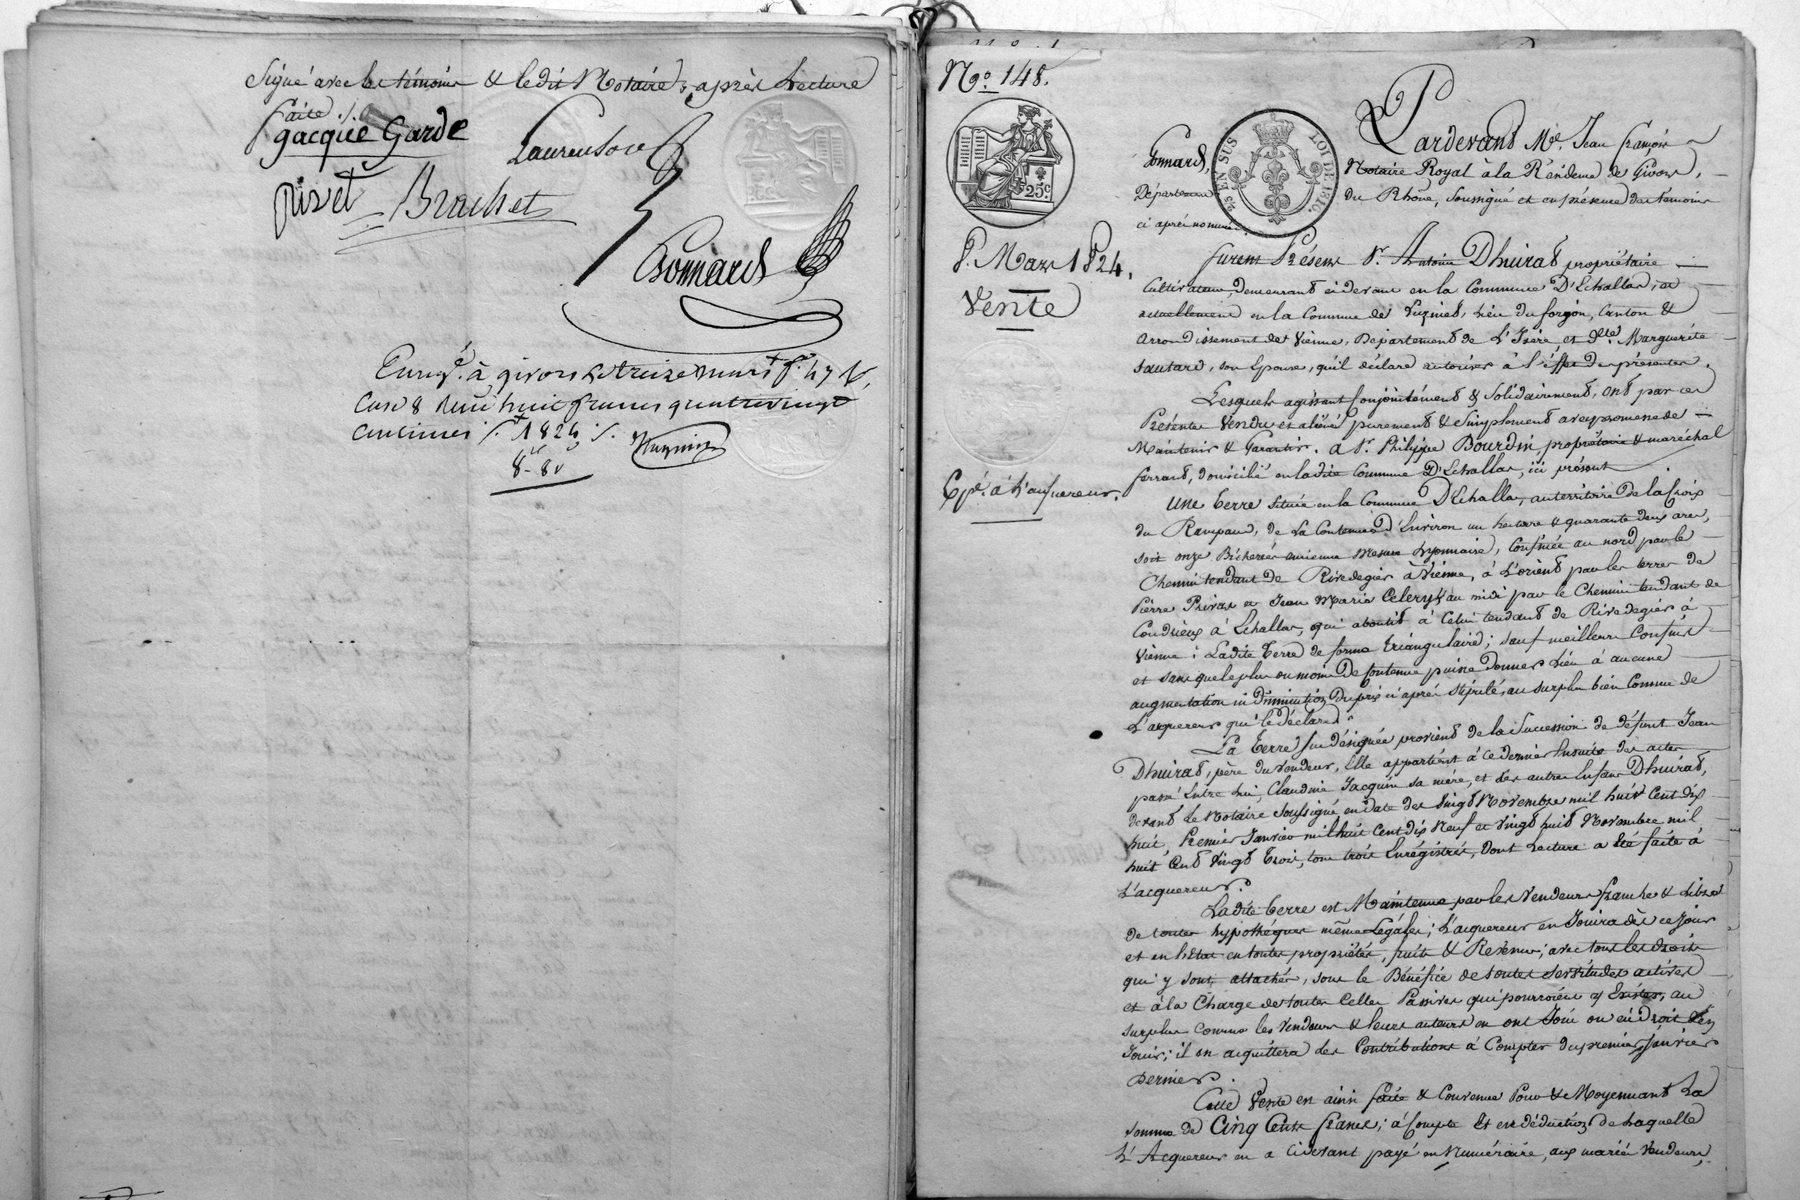 Signé avec les témoins & ledit Notaire, après Lecture
faite ./.
Jacque Garde
Laurenson
pivet
Brachet
Gonnard
Enreg.é à givors le treize mars f.o 47 V.
Case 8 Reçu huit francs quatrevingt
centimes ./. 1824 ./.
8-80
N.o 148.
25c
8. Mars 1824.
Vente
Exp.é à l'acquereur.
25 EN SUS
LOI DE 1816.
Pardevant M.e Jean françois
Gonnard, Notaire Royal à la Résidence de Givors,
Département du Rhône, soussigné et en présence des temoins
ci après nommés.
furent Présens s.r Antoine Dhuirat propriétaire
Cultivateur, demeurant cidevant en la Commune D'Echallas, et
actuellement en la Commune de , lieu du forgon, Canton &
Arrondissement de Vienne, Département de L'Isère, et d.lle Marguerite
Soutard, son Epouse, qu'il déclare autoriser à l'effet des présentes.
Lesquels agissant Conjointement & Solidairement, ont par ces
Présentes Vendu et aliéné purement & simplement avec promesse de
Maintenir & Garantir. à s.r Philippe Bourdin propriétaire & maréchal
ferrant, domicilié en ladite Commune D'Echallas, ici présent
Une terre située en la Commune D'Echallas, au territoire de la Croix
du Rampaud, de la Contenue d'Environ un hectare & quarante deux ares,
soit onze Bicherées ancienne Mesure Lyonnaise, Confinée au nord par le
Chemin tendant de Rivedegier à Vienne, à L'orient par les terres de
Pierre Privas et Jean Marie Celery & au midi par le Chemin tendant de
Condrieux à Echallas, qui aboutit à Celui tendant de Rivedegier à
Vienne ; Ladite terre de forme triangulaire ; sauf meilleurs Confins
et sans que le plus ou moins de Contenue puisse donner Lieu à aucune
augmentation ni Diminution Du prix ci après stipulé, au surplus bien Connue de
L'acquereur qui le déclare.
La terre sus désignée provient de la Succession de défunt Jean
Dhuirat, père du vendeur, Elle appartient à ce dernier Ensuite des actes
passé Entre lui, Claudine Jacquin sa mère, et les autres Enfans Dhuirat,
devant Le Notaire Soussigné en date des Vingt Novembre mil huit Cent dix
huit, Premier Janvier mil huit Cent dix Neuf et Vingt huit Novembre mil
huit Cent Vingt trois, tous trois Enregistrés, dont Lecture a été faite à
L'acquereur.
Ladite terre est Maintenue par les Vendeurs franche & Libre
de toutes hypothéques même Légales ; L'acquereur en Jouira dès ce jour
et en l'état en toutes propriétés, fruits & Revenus ; avec tous les droits
qui y sont attachés, sous le Bénéfice de toutes servitudes actives
et à la Charge de toutes Celles Passives qui pourroient y Exister, au
surplus comme les Vendeurs & leurs auteurs en ont Joui ou eu Droit d'en
Jouir ; il en acquittera les Contributions à Compter du premier Janvier
Dernier.
Cette Vente est ainsi faite & Convenue Pour & Moyennant La
somme de Cinq Cents francs ; à Compte et en déduction de laquelle
L'Acquereur en a Cidevant payé en Numéraire, aux mariés Vendeurs,